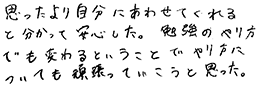 思ったより自分にあわせてくれる
と分かって安心した。勉強のやり方
でも変わるということでやり方に
ついても頑張っていこうと思った。